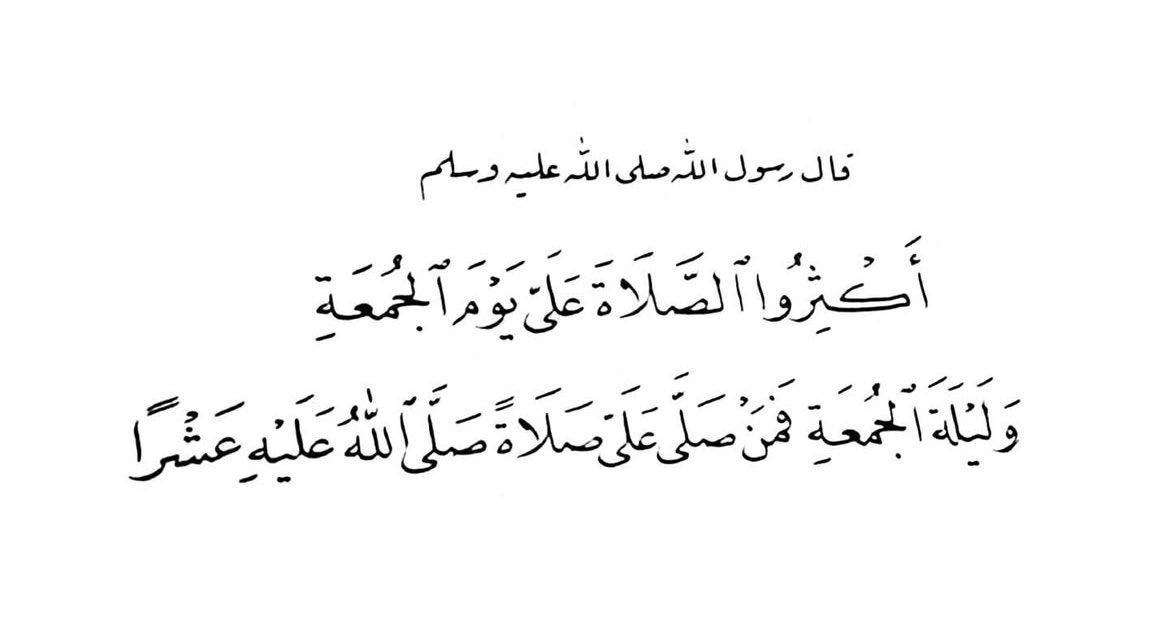 قال رسول الله صلى الله عليه وسلم
أَكْثِرُوا ٱلصَّلَاةَ عَلَيَّ يَوْمَ ٱلْجُمُعَةِ
وَلَيْلَةَ ٱلْجُمُعَةِ فَمَنْ صَلَّى عَلَيَّ صَلَاةً صَلَّى ٱللَّهُ عَلَيْهِ عَشْرًا